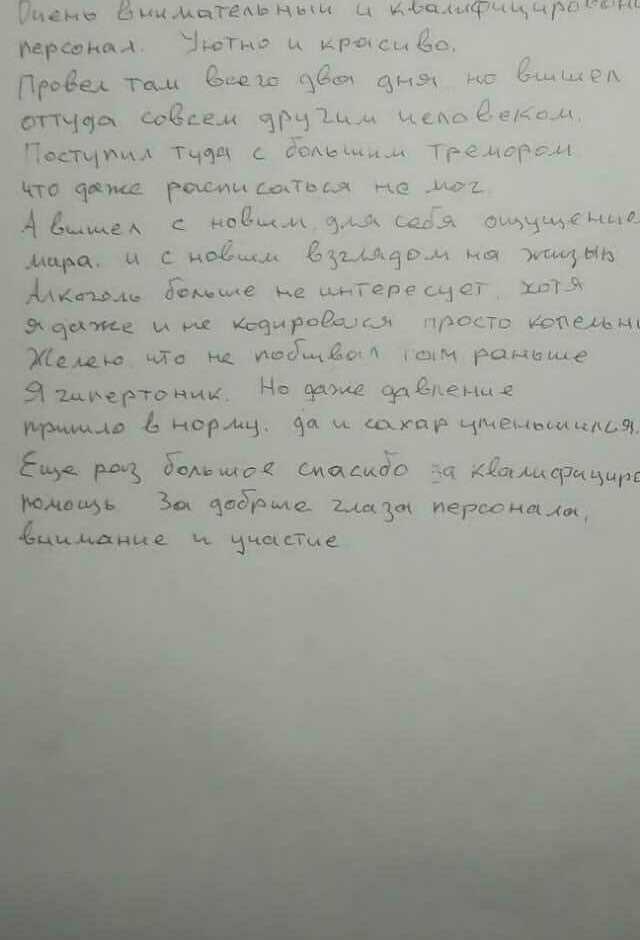 Очень внимательный и квалифицирован
персонал. Уютно и красиво.
Провел там всего два дня но вышел
оттуда совсем другим человеком.
Поступил туда с большим тремором
что даже расписаться не мог.
А вышел с новым для себя ощущение
мира. и с новым взглядом на жизнь
Алкоголь больше не интересует, хотя
я даже и не кодировался просто
Желею что не побывал там раньше
Я гипертоник. Но даже давление
пришло в норму. да и сахар уменьшился.
Еще раз большое спасибо за квалифициро
помощь За добрые глаза персонала,
внимание и участие